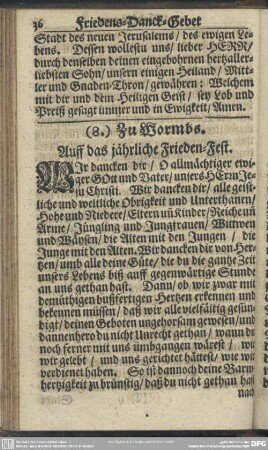 36 Friedens-Danck-Gebet
Stadt des neuen Jerusalems/ des ewigen Le-
bens. Dessen wollestu uns/ lieber HERR/
durch denselben deinen eingebohrnen hertzaller-
liebsten Sohn/ unsern einigen Heiland/ Mitt-
ler und Gnaden-Thron/ gewähren: Welchem
mit dir und dem Heiligen Geist/ sey Lob und
Preiß gesagt immer und in Ewigkeit/ Amen.
(8.) Zu Wormbs.
Auff das jährliche Frieden-Fest.
WIr dancken dir/ O allmächtiger ewi-
ger GOtt und Vater/ unsers HErrn Je-
su Christi. Wir dancken dir/ alle geist-
liche und weltliche Obrigkeit und Unterthanen/
Hohe und Niedere/ Eltern uñ Kinder/ Reiche uñ
Arme/ Jüngling und Jungfrauen/ Wittwen
und Wäysen/ die Alten mit den Jungen/ die
Junge mit den Alten. Wir dancken dir von Her-
tzen/ umb alle deine Güte/ die du die gantze Zeit
unsers Lebens biß auff gegenwärtige Stunde
an uns gethan hast. Dann/ ob wir zwar mit
demüthigen bußfertigen Hertzen erkennen und
bekennen müssen/ daß wir alle vielfältig gesün-
digt/ deinen Geboten ungehorsam gewesen/ und
dannenhero du nicht Unrecht gethan/ wann du
noch ferner mit uns umbgangen wärest/ wie
wir gelebt/ und uns gerichtet hättest/ wie wir
verdienet haben. So ist dannoch deine Barm-
hertzigkeit zu brünstig/ daß du nicht gethan hast
nach